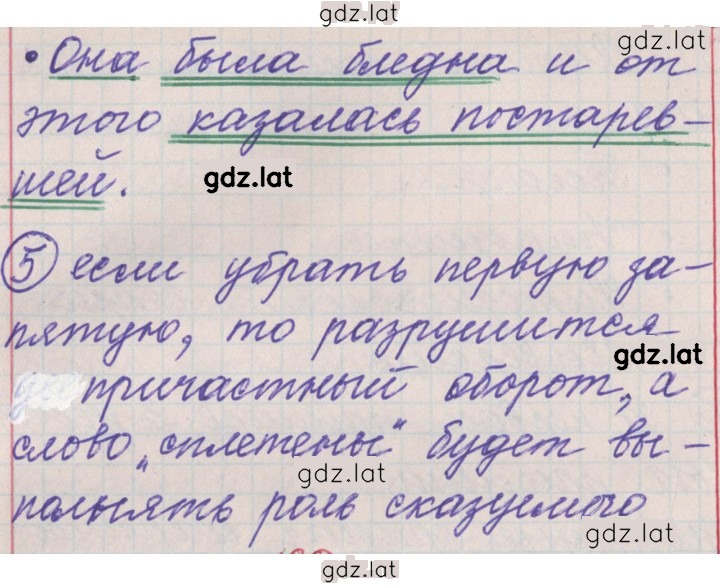 gdz.lat
gdz.lat
• Она была бледна и от
этого казалась постарев-
шей.
gdz.lat
5 если убрать первую за-
пятую, то разрушится
gdz.lat
причастный оборот, а
слово „сплетены" будет вы-
gdz.lat
полнять роль сказуемого
gdz.lat
gdz.lat